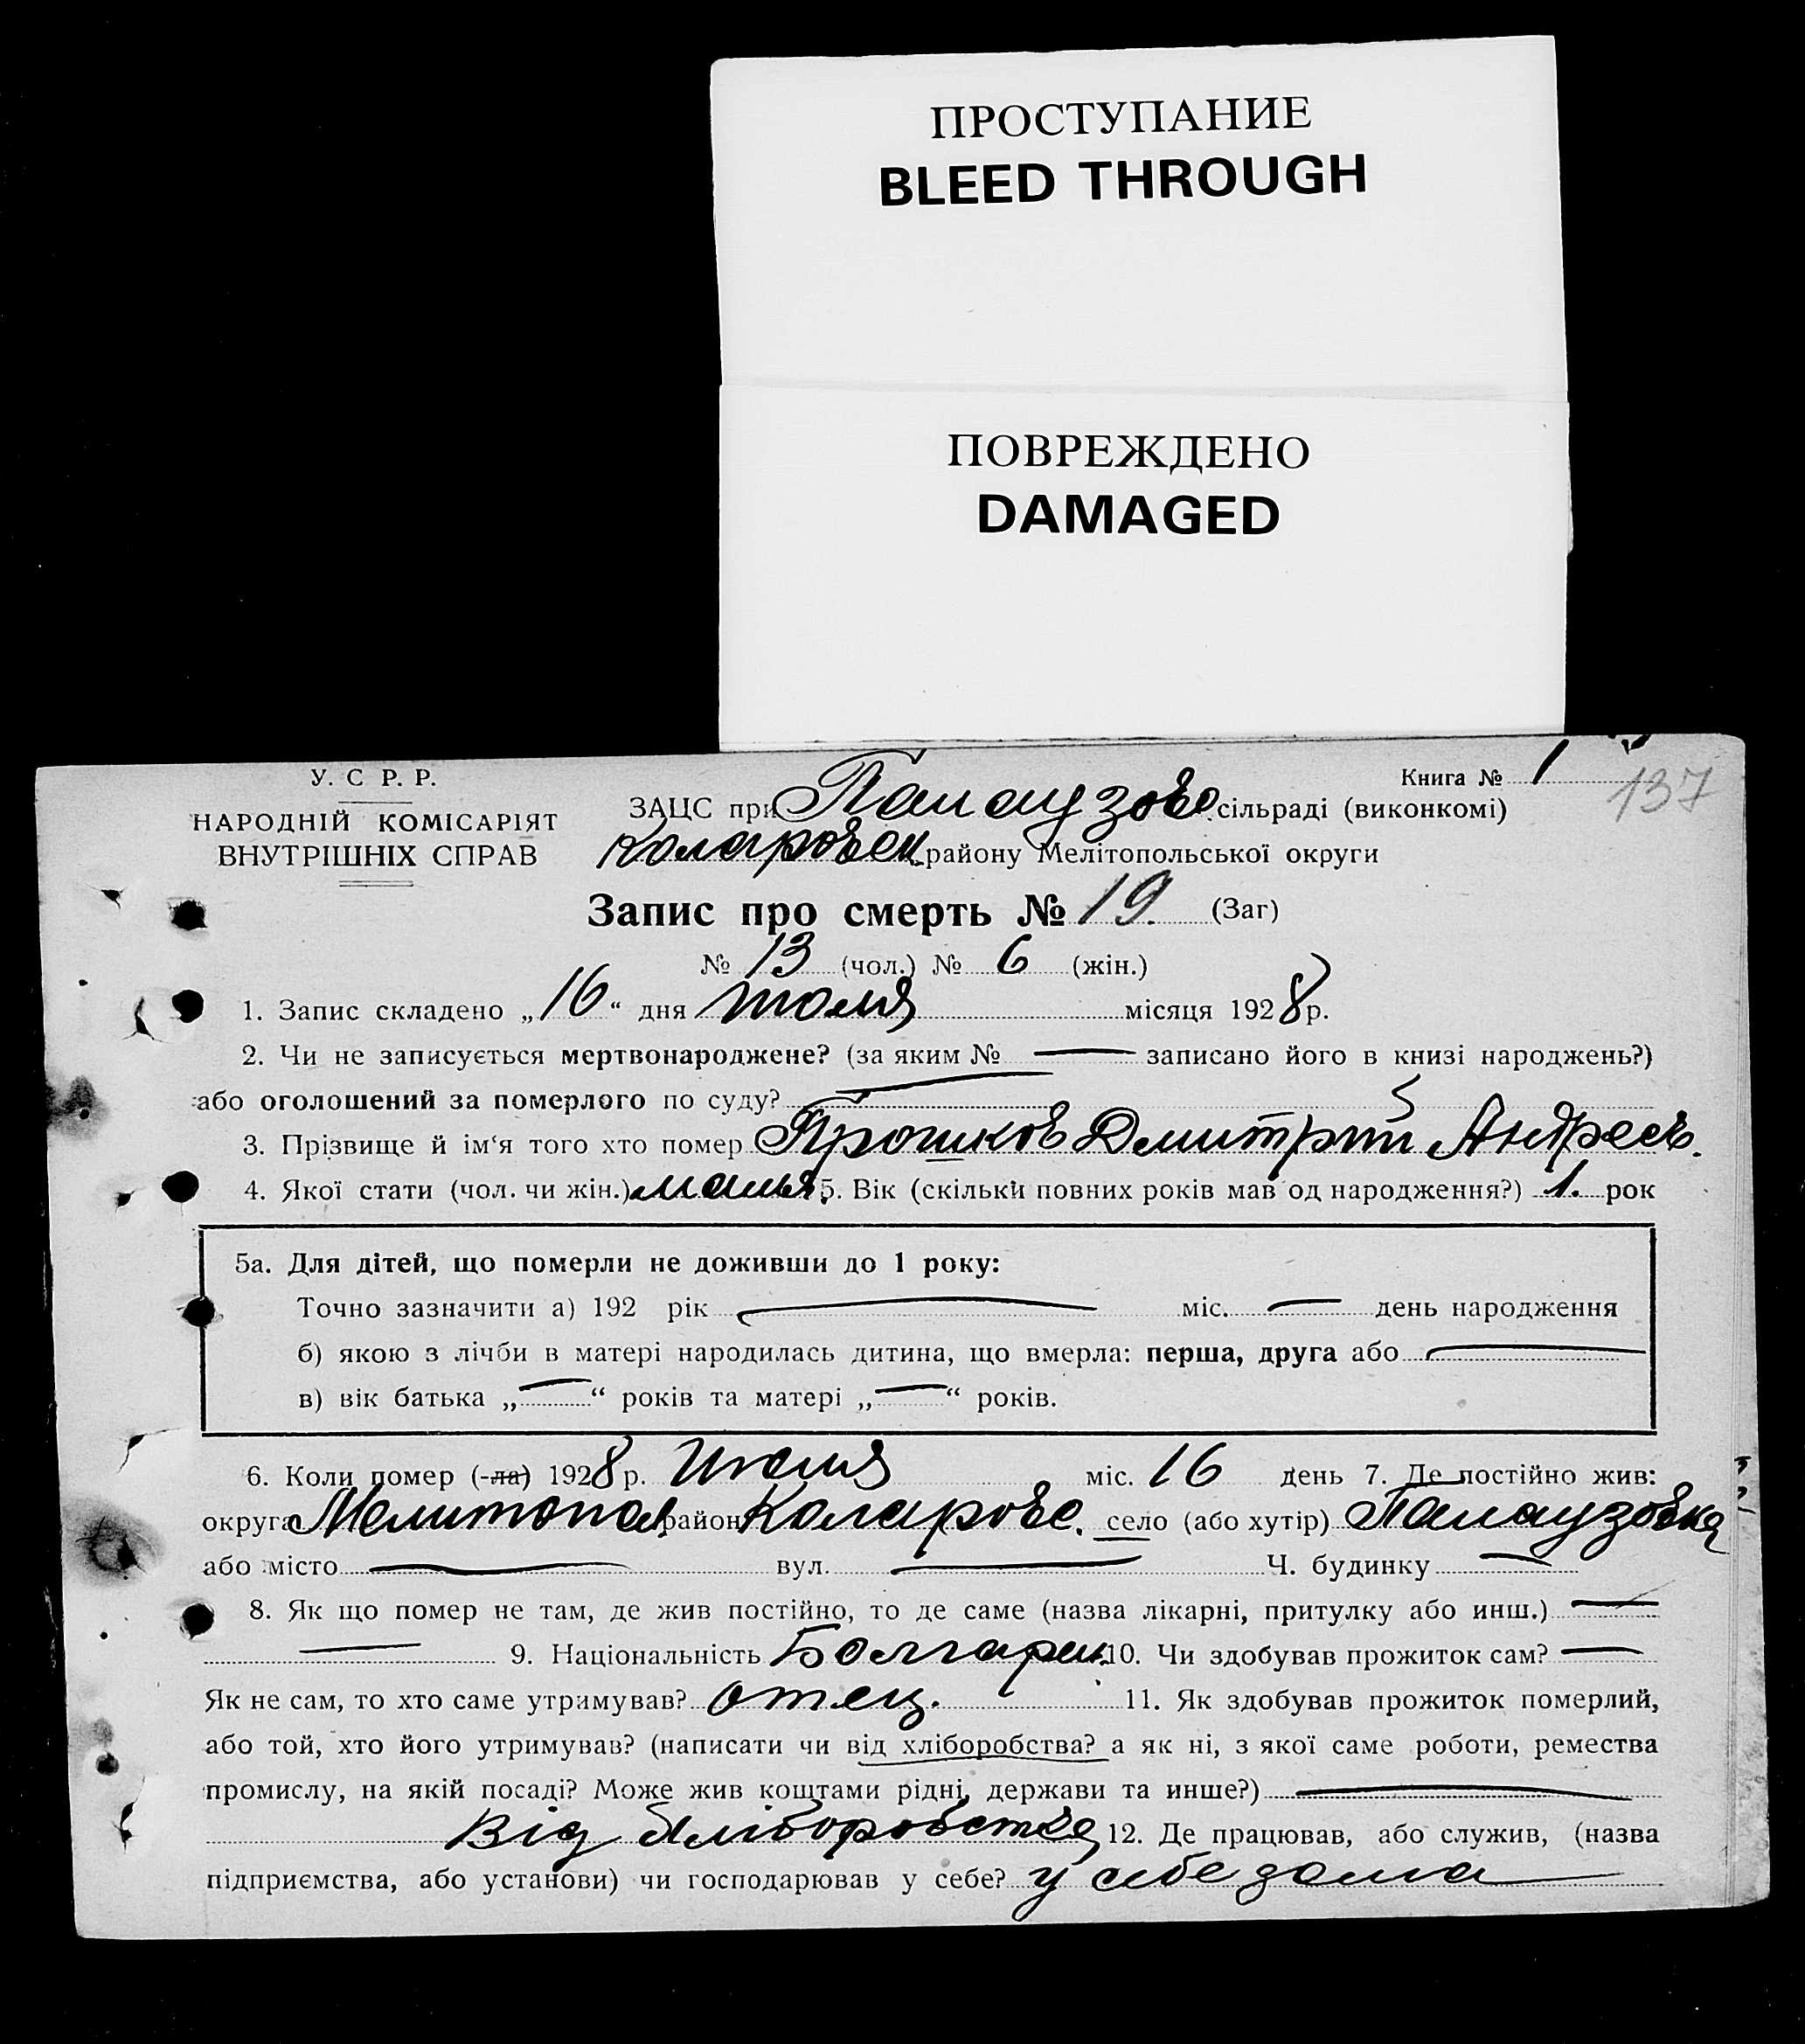 ПРОСТУПАНИЕ
BLEED THROUGH
ПОВРЕЖДЕНО
DAMAGED
У. С Р. Р.
НАРОДНІЙ КОМІСАРІЯТ
ВНУТРІШНІХ СПРАВ
Книга № 1
137
ЗАЦС при Палаузово сільраді (виконкомі)
Коларовск. району Мелітопольської округи
Запис про смерть № 19. (Заг)
№ 13 (чол.) № 6 (жін.)
1. Запис складено „16“ дня июля місяця 1928 р.
2. Чи не записується мертвонароджене? (за яким № — записано його в книзі народжень?)
або оголошений за померлого по суду? —
3. Прізвище й ім‘я того хто помер Прошков Дмитрий Андреев.
4. Якої стати (чол. чи жін.) 5. Вік (скільки повних років мав од народження?) 1. рок
5а. Для дітей, що померли не доживши до 1 року:
Точно зазначити а) 192 рік — міс. — день народження
б) якою з лічби в матері народилась дитина, що вмерла: перша, друга або —
в) вік батька „—“ років та матері „—“ років.
6. Коли помер (-ла) 1928 р. Июля міс. 16 день 7. Де постійно жив:
округа Мелитопол район Коларовс. село (або хутір) Палаузовка
або місто — вул. — Ч. будинку —
8. Як що помер не там, де жив постійно, то де саме (назва лікарні, притулку або инш.) —
— 9. Національність Болгарин 10. Чи здобував прожиток сам? —
Як не сам, то хто саме утримував? отец. 11. Як здобував прожиток померлий,
або той, хто його утримував? (написати чи від хліборобства? а як ні, з якої саме роботи, ремества
промислу, на якій посаді? Може жив коштами рідні, держави та инше?) —
Від хліборобства 12. Де працював, або служив, (назва
підприємства, або установи) чи господарював у себе? у себе дома